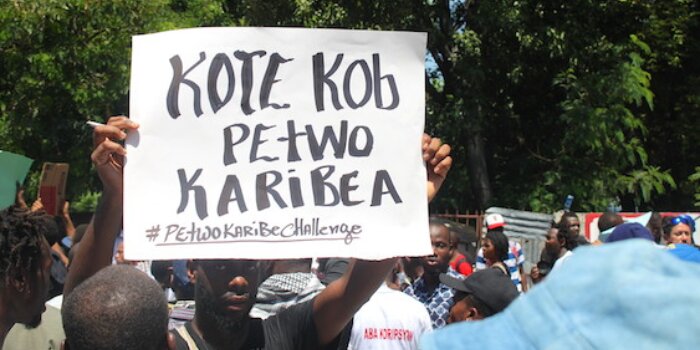 KOTE KOb
PEtWO
KARIBEA
#PEtwOKARIBECHAllenge
ABA KORIPSYON